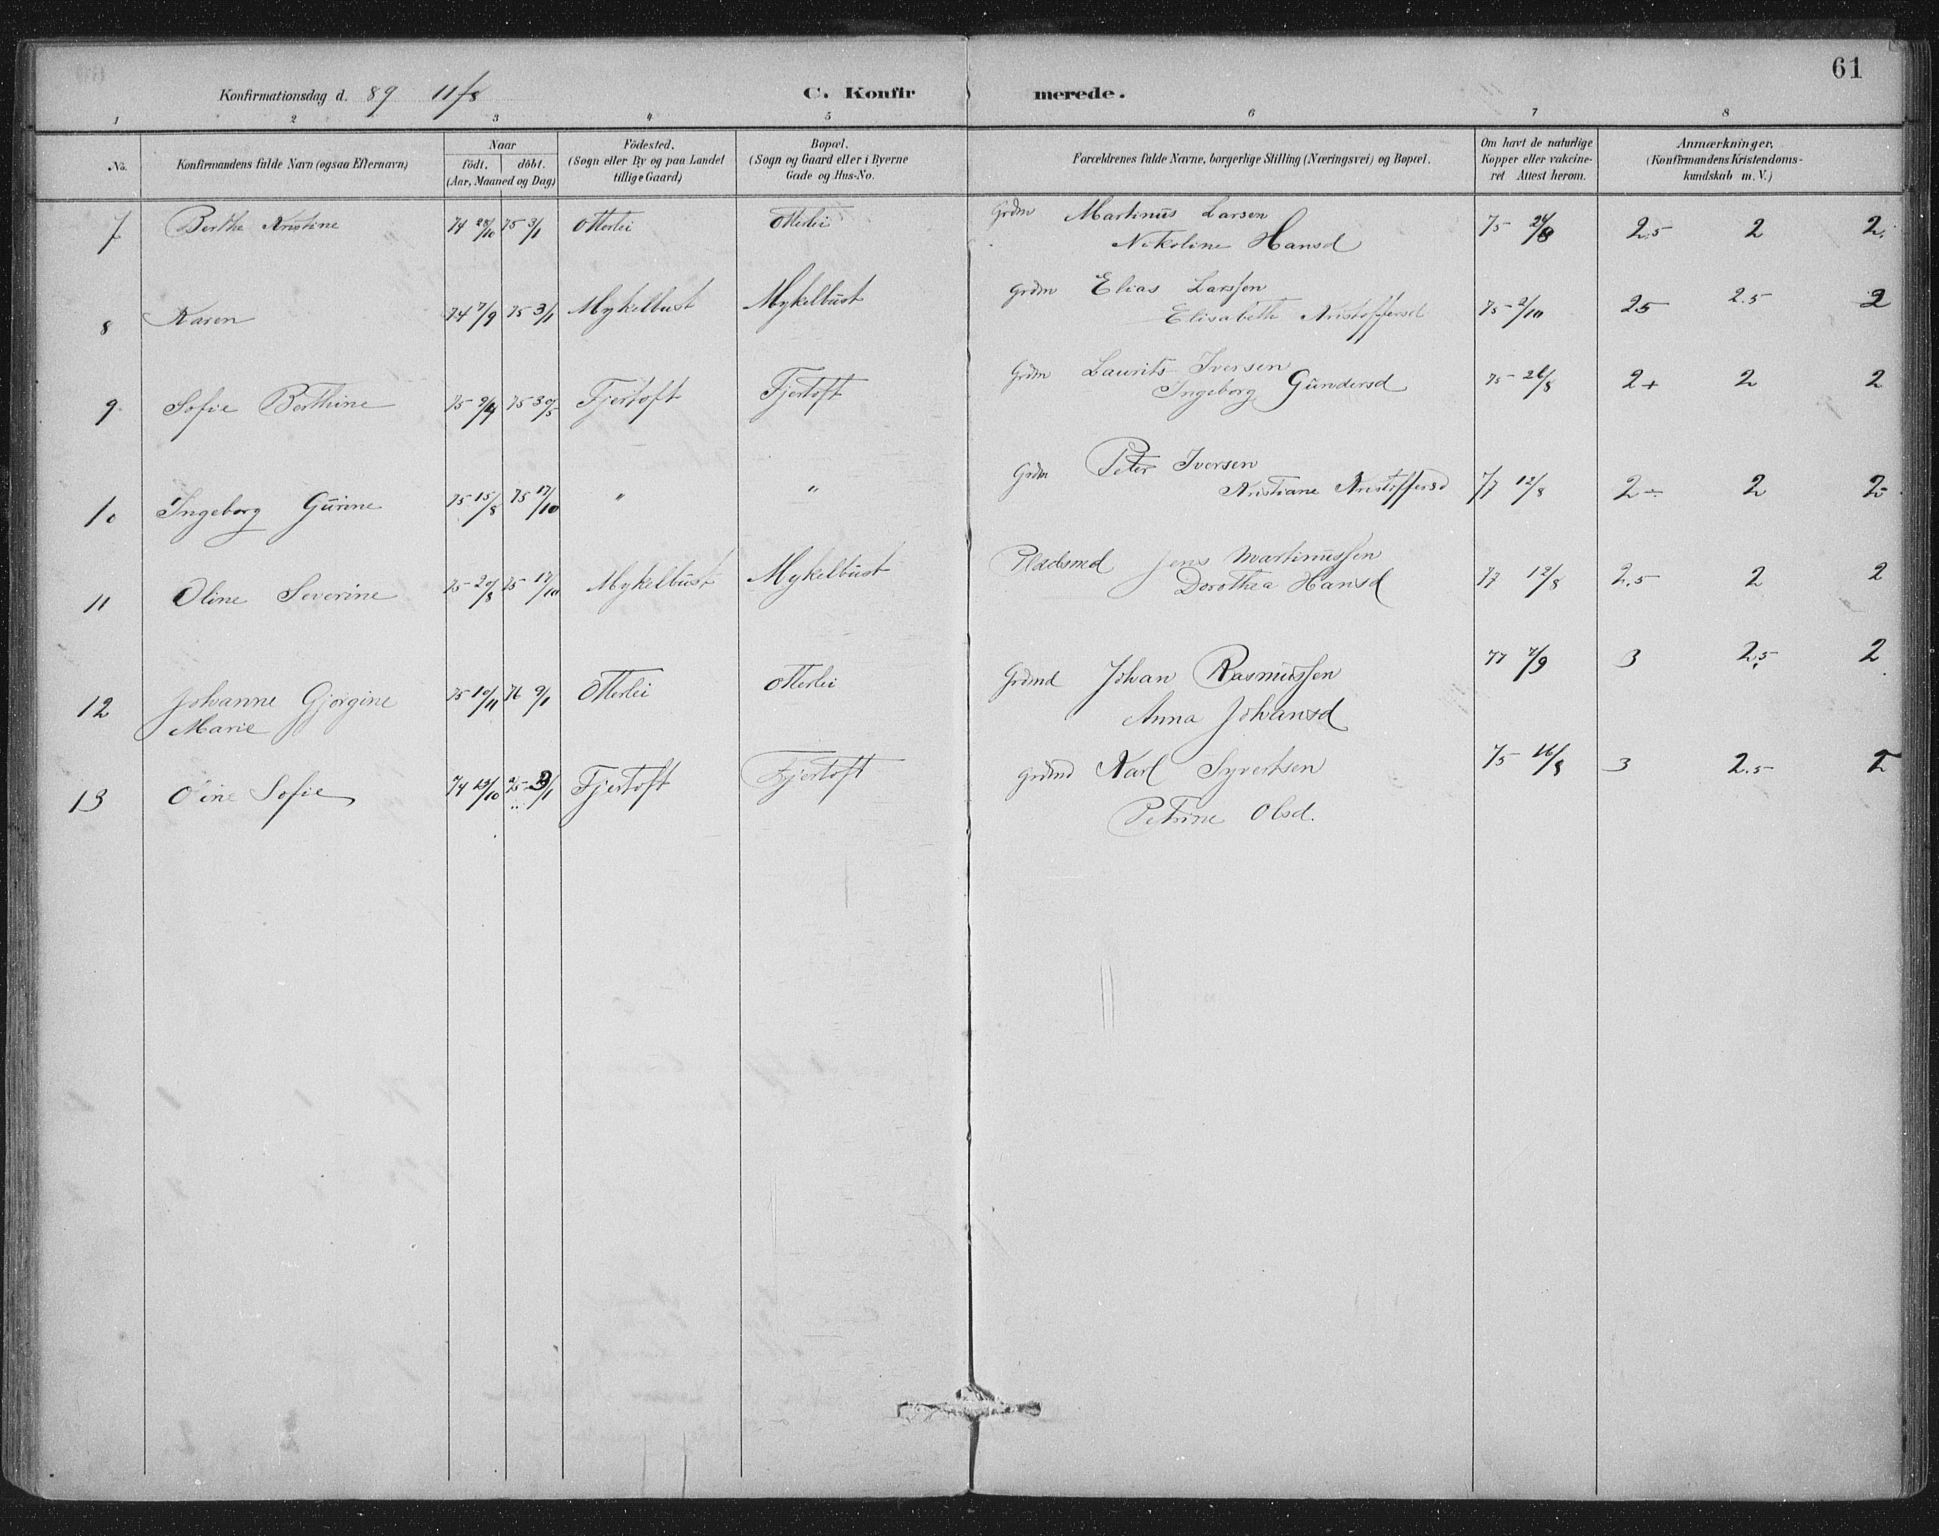 61
Konfirmationsdag d. 89 11/8 C. Konfirmerede.
1 2 3 4 5 6 7 8
No. Konfirmandens fulde Navn (ogsaa Efternavn) Naar født. døbt. (Aar, Maaned og Dag) Födested. (Sogn eller By og paa Landet tillige Gaard) Bopæl. (Sogn og Gaard eller i Byerne Gade og Hus-No. Forældrenes fulde Navne, borgerlige Stilling (Næringsvei) og Bopæl. Om havt de naturlige Kopper eller vakcineret Attest herom. Anmærkninger, (Konfirmandens Kristendomskundskab m. V.)
7 Berthe Kristine 74 28/10 75 3/1 Otterlei Otterlei Grdm Martinus Larsen 75 24/8 2.5 2 2.
Nikoline Hansd
8 Karen 74 7/9 75 3/1 Mykelbust Mykelbust Grdm Elias Larssen 75 2/10 25 2.5 2
Elisabeth Kristoffersd
9 Sofie Berthine 75 75 30/5 Fjertoft Fjertoft Grdm Laurits Iversen 75 26/8 2+ 2 2
Ingeborg Gundersd
10 Ingeborg Gurine 75 15/8 75 17/10 " " Grdm Peter Iversen 77 12/8 2÷ 2 2-
Kristiane Kristoffersd
11 Oline Severine 75 20/8 75 17/10 Mykelbust Mykelbust Pladsmd Jens Martinussen 77 12/8 2.5 2 2
Dorothea Hansd
12 Johanne Gjørgine 75 10/11 76 9/1 Otterlei Otterlei Grdmd Johan Rasmussen 77 7/9 3 2.5 2
Marie Anna Johansd
13 Oline Sofie 74 13/10 75 3/1 Fjertoft Fjertoft Grdmd Karl Syvertsen 75 16/8 3 2.5 2
Petrine Olsd.